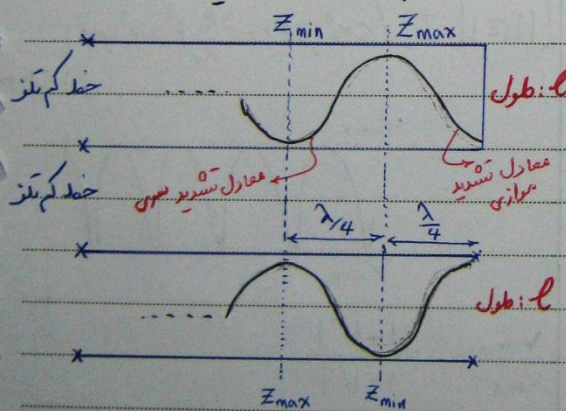 Zmin Zmax
خط کم تلف
طول: l
معادل تشدید سری
معادل تشدید
موازی
خط کم تلف
λ/4 λ/4
طول: l
Zmax Zmin